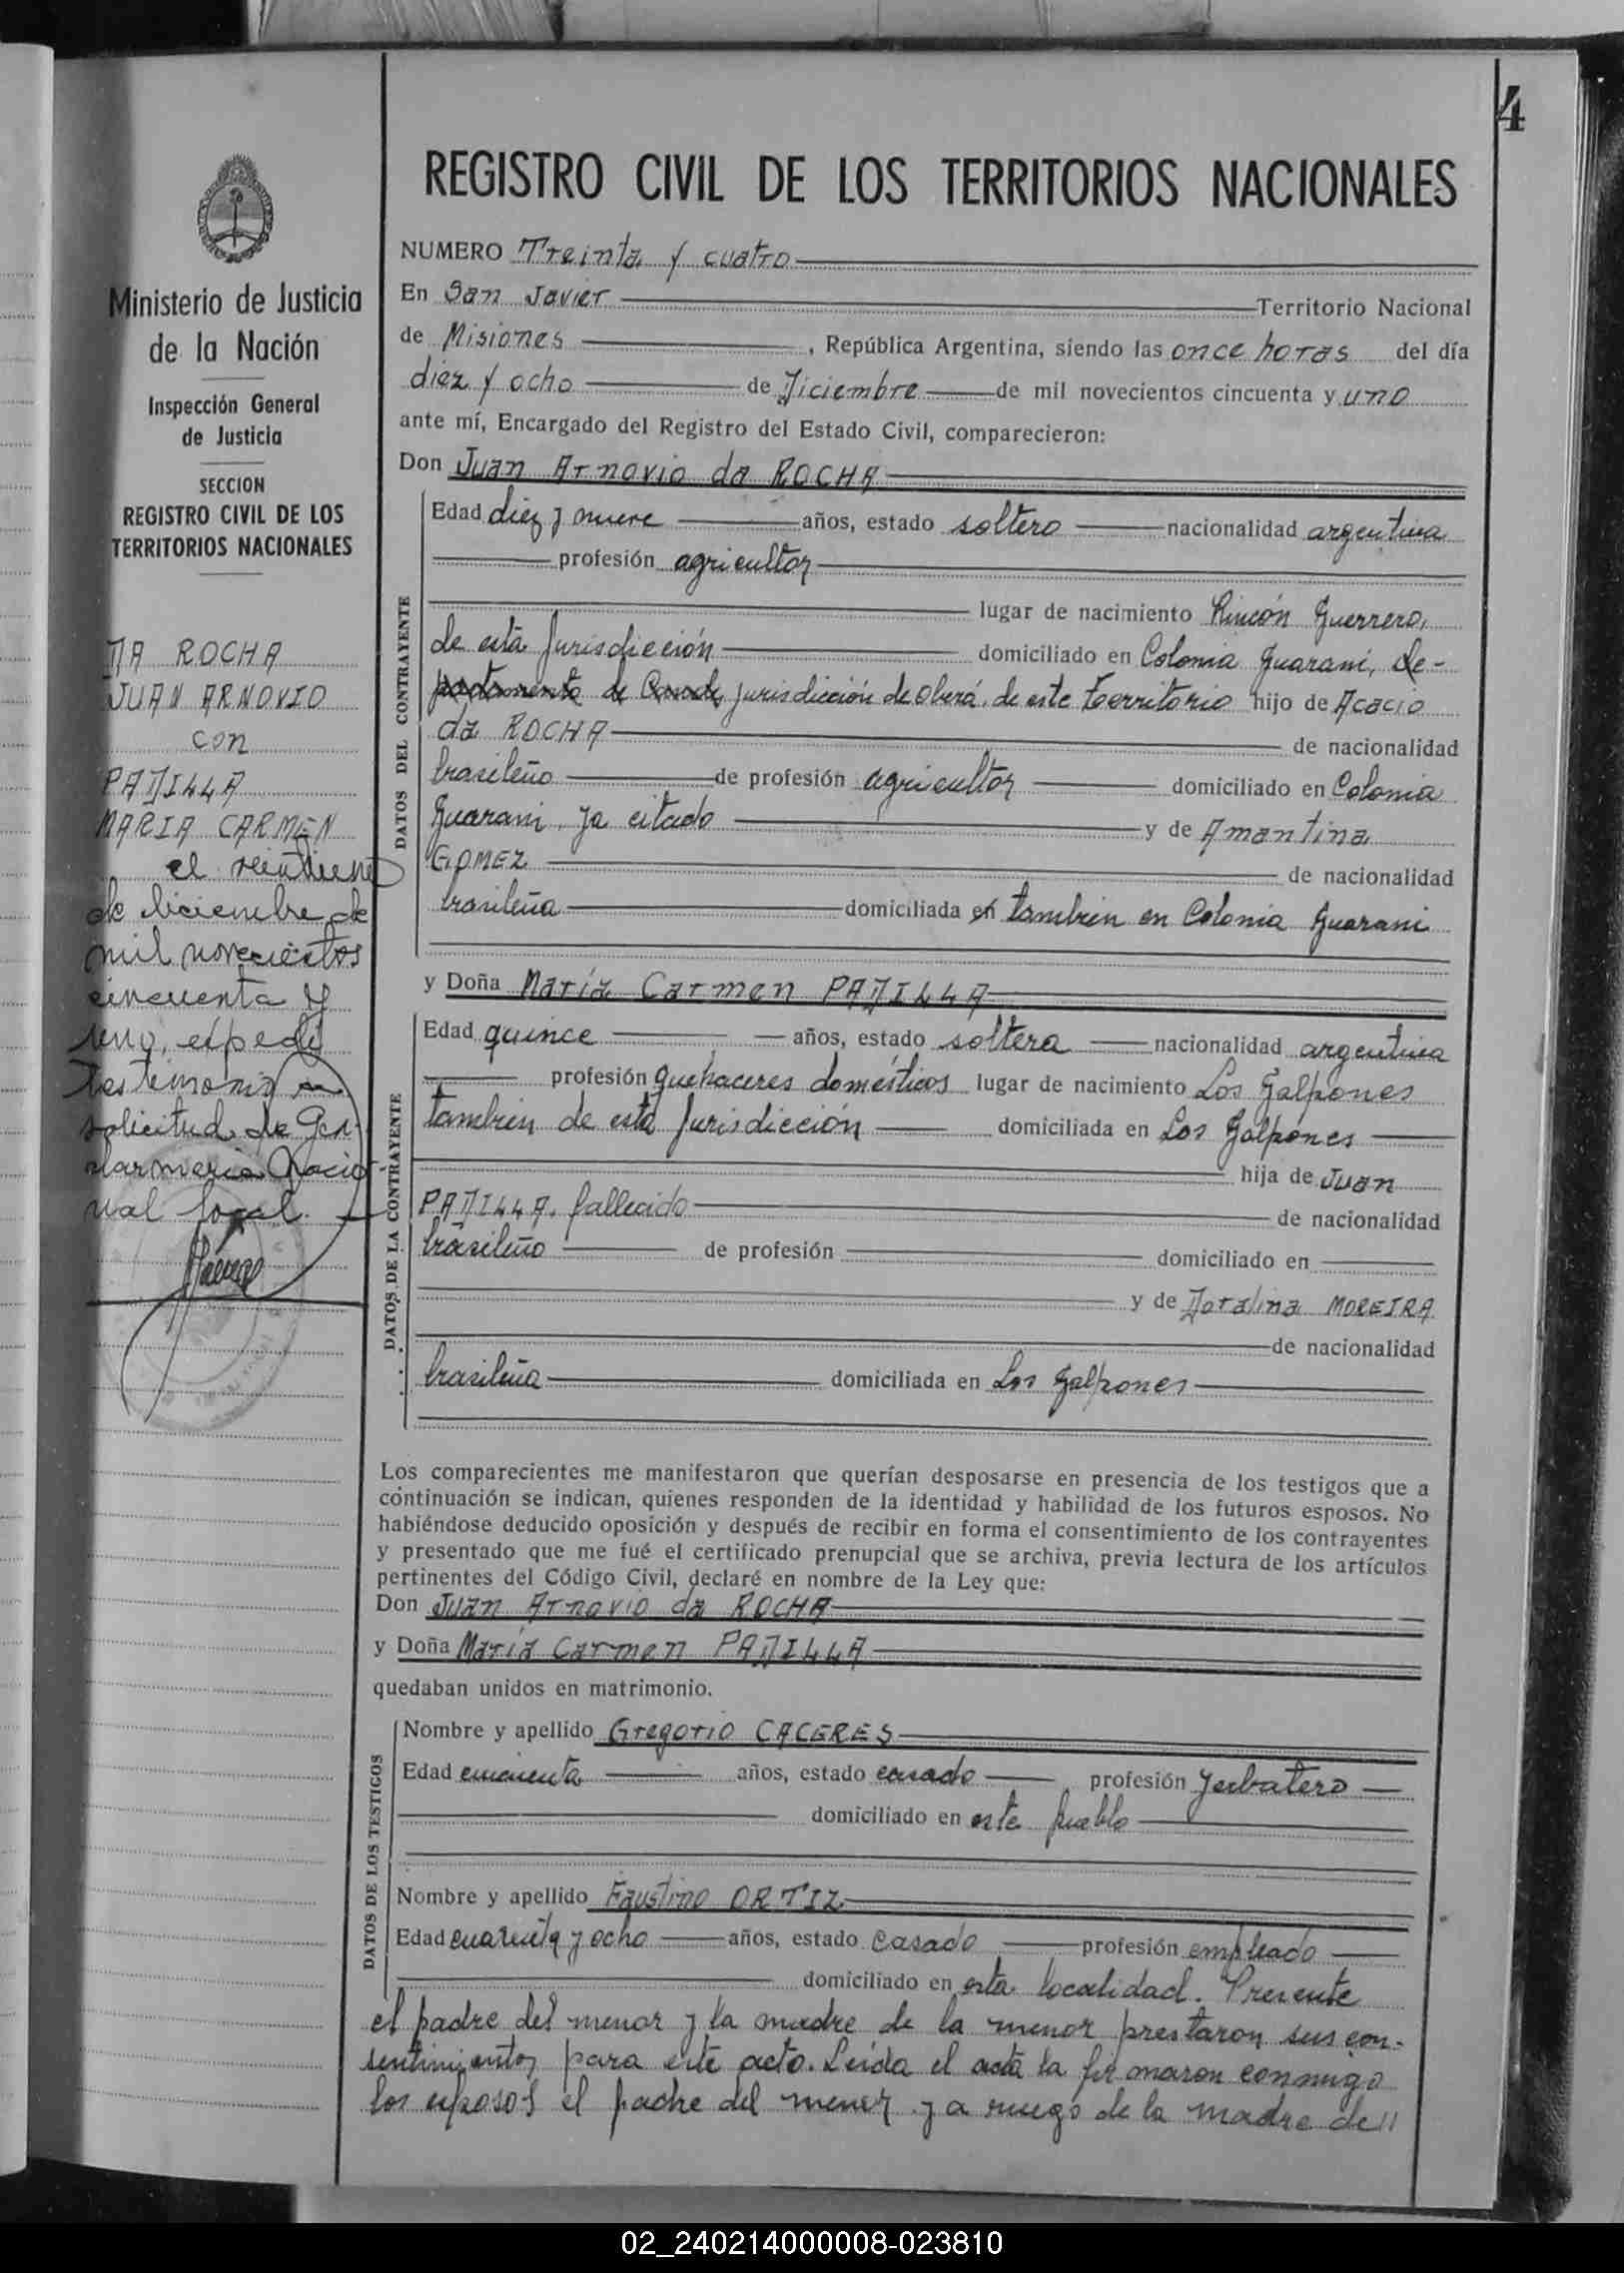 4
REGISTRO CIVIL DE LOS TERRITORIOS NACIONALES
Ministerio de Justicia
de la Nación
Inspección General
de Justicia
SECCION
REGISTRO CIVIL DE LOS
TERRITORIOS NACIONALES
DA ROCHA
JUAN ARNOVIO
con
PADILLA
MARIA CARMEN
el veintiuno
de diciembre de
mil novecientos
cincuenta y
uno, expedí
testimonio a
solicitud de Gen-
darmeria Nacio-
nal local.
NUMERO Treinta y cuatro
En San Javier Territorio Nacional
de Misiones, República Argentina, siendo las once horas del día
diez y ocho de Diciembre de mil novecientos cincuenta y uno
ante mí, Encargado del Registro del Estado Civil, comparecieron:
Don Juan Arnovio da ROCHA
DATOS DEL CONTRAYENTE
Edad diez y nueve años, estado soltero nacionalidad argentina
profesión agricultor
lugar de nacimiento Rincón Guerrero,
de esta Jurisdicción domiciliado en Colonia Guaraní, de-
partamento de jurisdicción de Oberá, de este territorio hijo de Acacio
da ROCHA de nacionalidad
brasileño de profesión agricultor domiciliado en Colonia
Guaraní, ya citado y de Amantina
GOMEZ de nacionalidad
brasileña domiciliada en tambien en Colonia Guaraní
y Doña María Carmen PADILLA
DATOS DE LA CONTRAYENTE
Edad quince años, estado soltera nacionalidad argentina
profesión quehaceres domésticos lugar de nacimiento Los Galpones
tambien de esta Jurisdicción domiciliada en Los Galpones
hija de Juan
PADILLA, fallecido de nacionalidad
brasileño de profesión domiciliado en
y de Doralina MOREIRA
de nacionalidad
brasileña domiciliada en Los Galpones
Los comparecientes me manifestaron que querían desposarse en presencia de los testigos que a
continuación se indican, quienes responden de la identidad y habilidad de los futuros esposos. No
habiéndose deducido oposición y después de recibir en forma el consentimiento de los contrayentes
y presentado que me fué el certificado prenupcial que se archiva, previa lectura de los artículos
pertinentes del Código Civil, declaré en nombre de la Ley que:
Don Juan Arnovio da ROCHA
y Doña María Carmen PADILLA
quedaban unidos en matrimonio.
DATOS DE LOS TESTIGOS
Nombre y apellido Gregorio CACERES
Edad cincuenta años, estado casado profesión yerbatero
domiciliado en este pueblo
Nombre y apellido Faustino ORTIZ
Edad cuarenta y ocho años, estado casado profesión empleado
domiciliado en esta localidad. Presente
el padre del menor y la madre de la menor prestaron sus con-
sentimientos para este acto. Leída el acta la firmaron conmigo
los esposos el padre del menor y a ruego de la madre de//
02_240214000008-023810